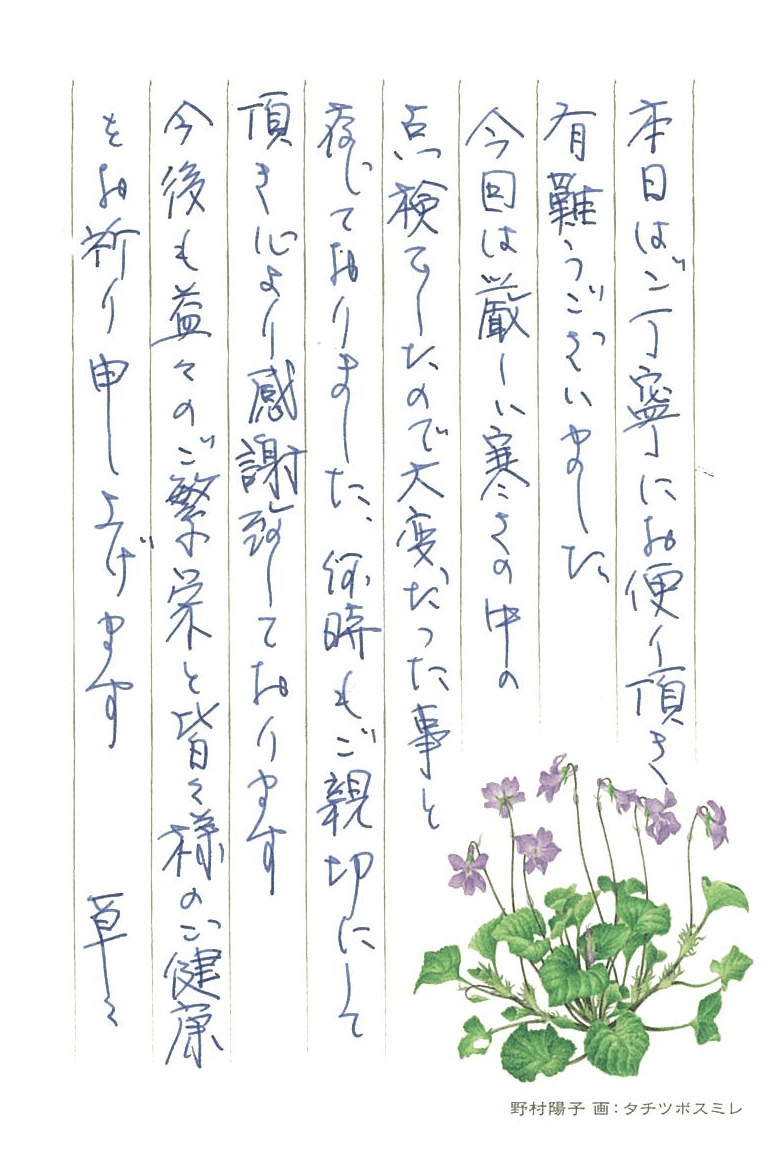 本日はご丁寧にお便り頂き
有難うございました
今回は厳しい寒さの中の
点検でしたので大変だった事と
存じておりました、何時もご親切にして
頂き心より感謝致しております
今後も益々のご繁栄と皆々様のご健康
をお祈り申し上げます　草々
野村陽子 画：タチツボスミレ